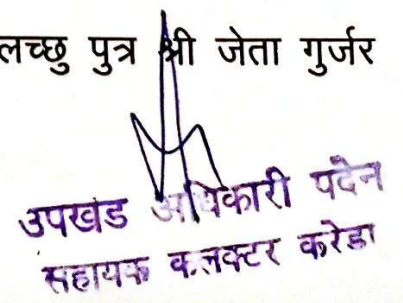 लच्छु पुत्र श्री जेता गुर्जर
उपखंड अधिकारी पदेन
सहायक कलक्टर करेडा